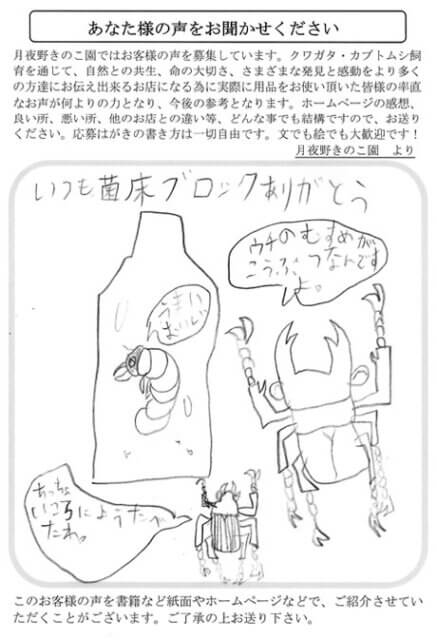 あなた様の声をお聞かせください
月夜野きのこ園ではお客様の声を募集しています。クワガタ・カブトムシ飼
育を通じて、自然との共生、命の大切さ、さまざまな発見と感動をより多く
の方達にお伝え出来るお店になる為に実際に用品をお使い頂いた皆様の率直
なお声が何よりの力となり、今後の参考となります。ホームページの感想、
良い所、悪い所、他のお店との違い等、どんな事でも結構ですので、お送り
ください。応募はがきの書き方は一切自由です。文でも絵でも大歓迎です！
月夜野きのこ園　より
いつも菌床ブロックありがとう
ウチのむすめが
こうぶつなんです
よ。
うまい
ちっちゃ
いころに
たわ。
このお客様の声を書籍など紙面やホームページなどで、ご紹介させてい
ただくことがございます。ご了承の上お送り下さい。